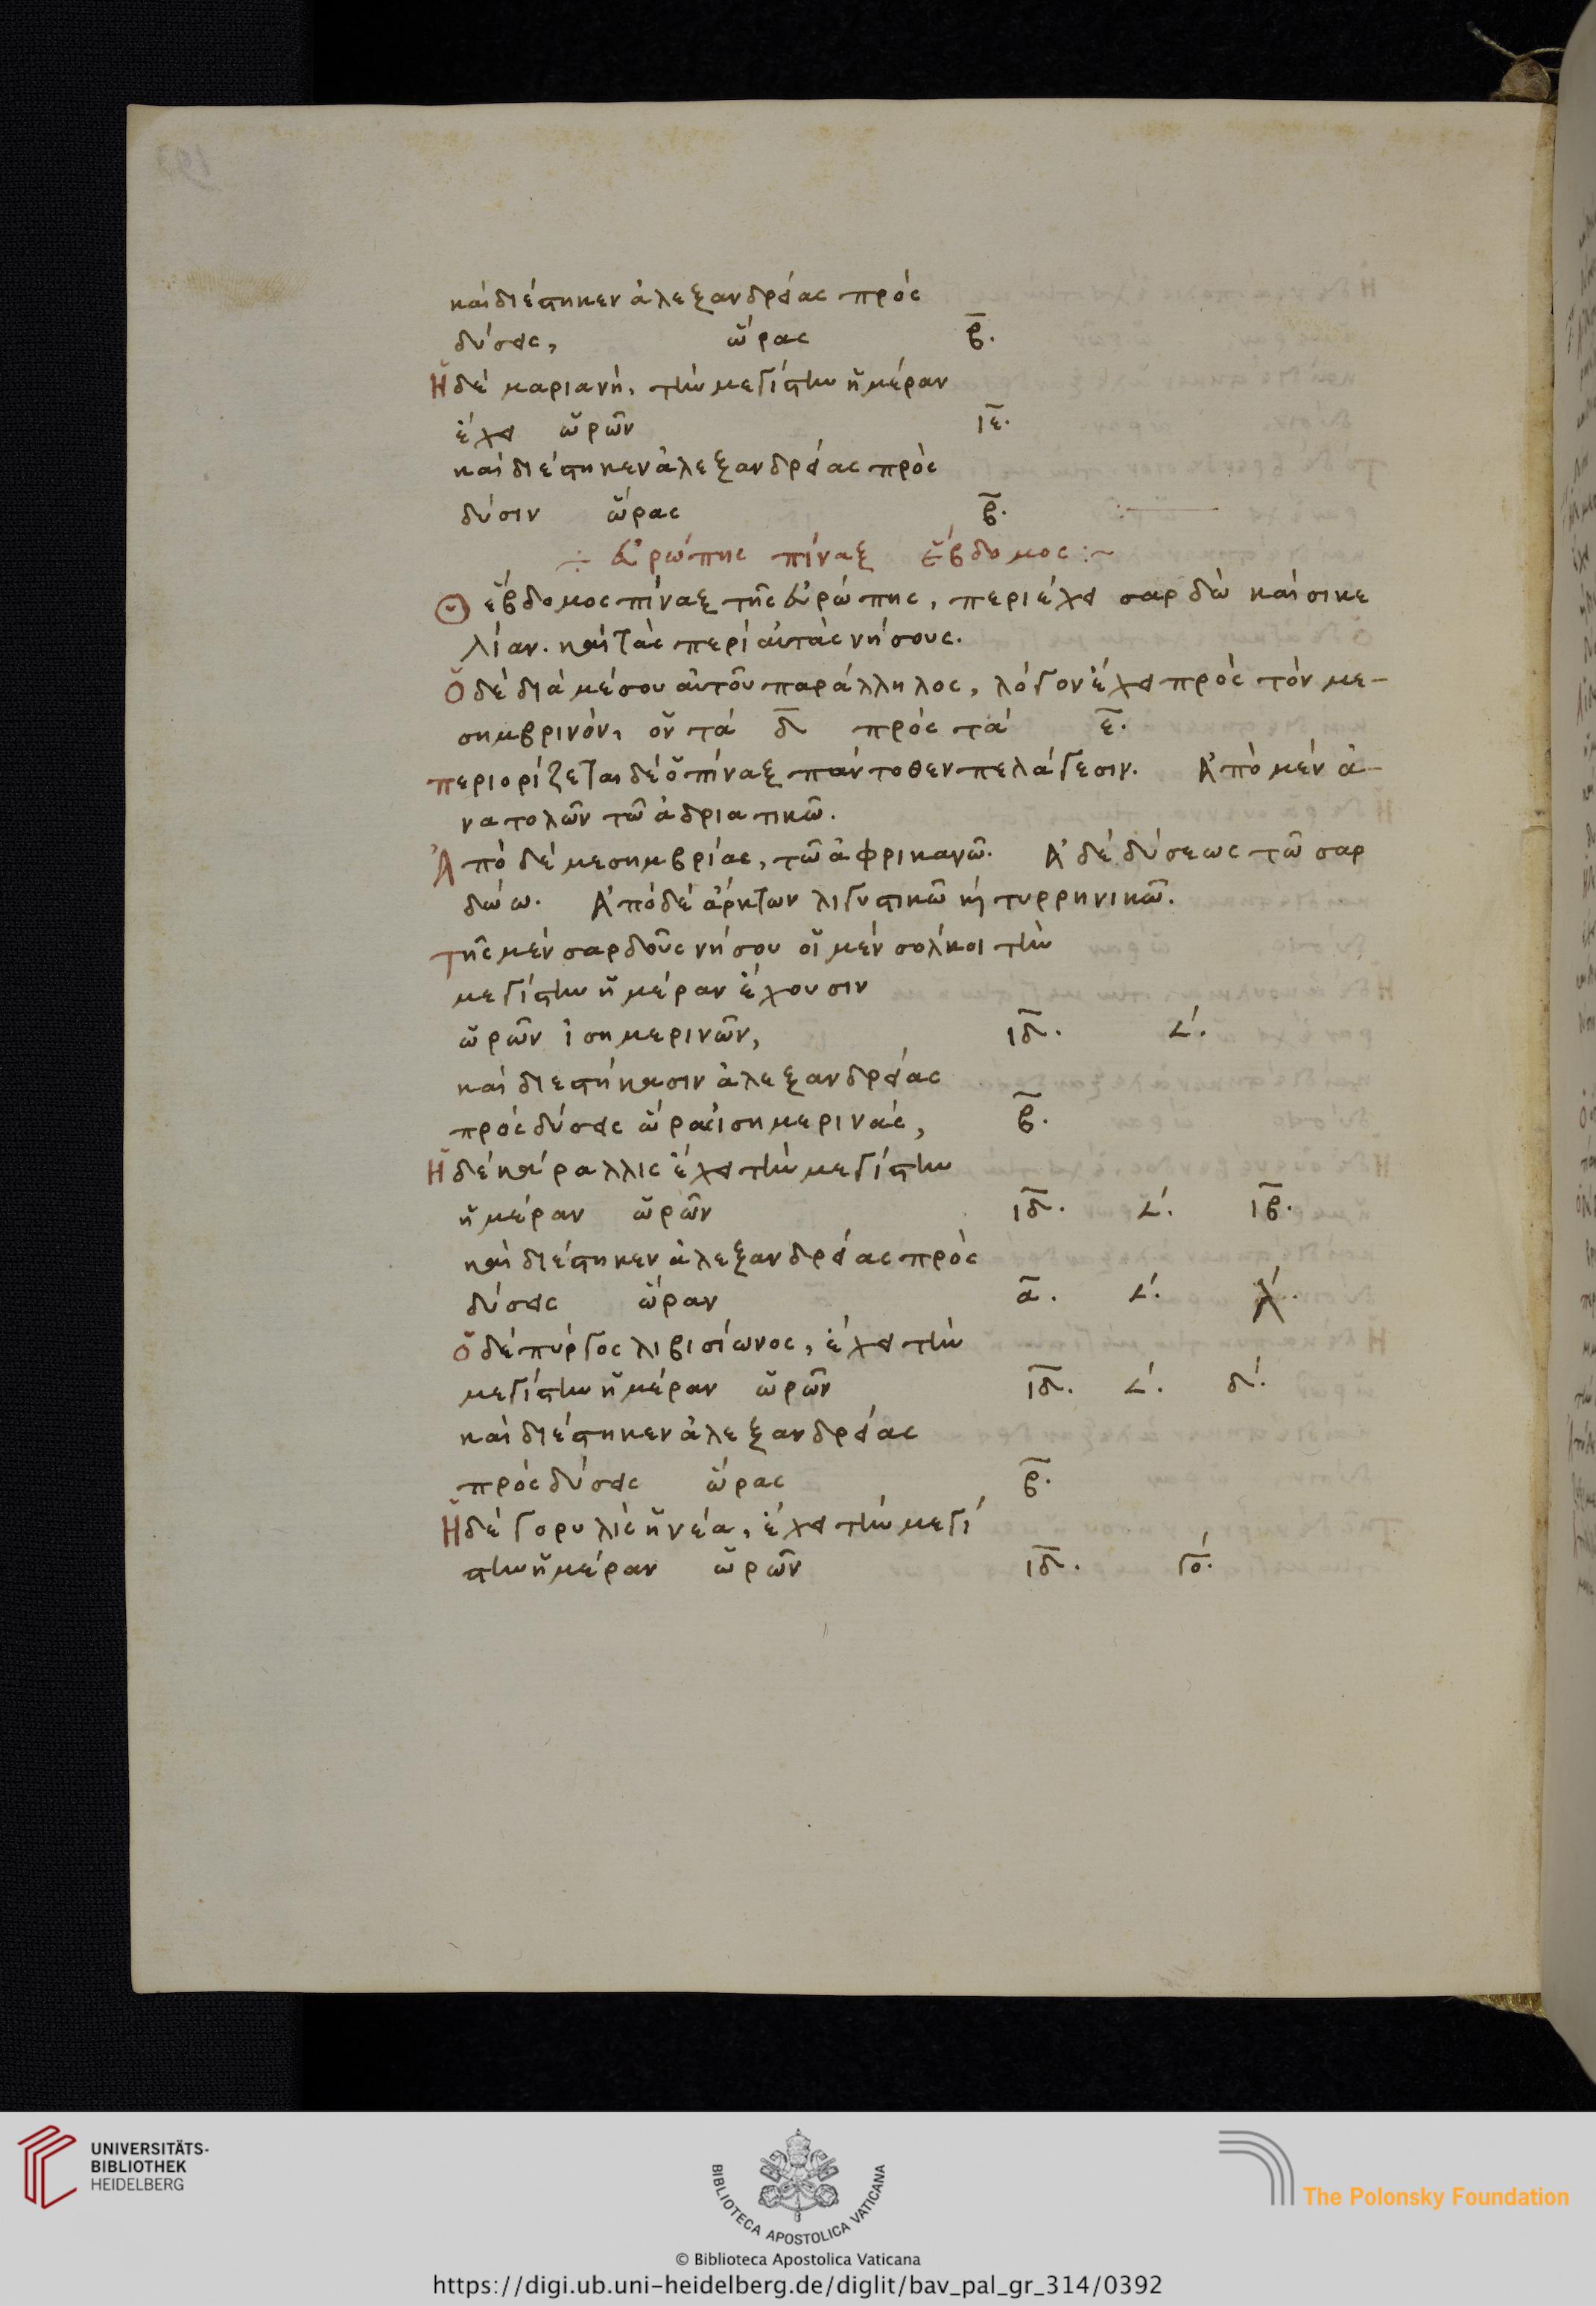 καὶ διέστηκεν ἀλεξανδρείας πρὸς
δύσεις, ὥρας β̄.
Ἡ δὲ μαριανὴ, τὴν μεγίστην ἡμέραν
ἔχει ὡρῶν ῑε̄.
καὶ διέστηκεν ἀλεξανδρείας πρὸς
δύσιν ὥρας β̄.
÷ Εὐρώπης πίναξ ἕβδομος :~
Ὁ ἕβδομος πίναξ τῆς εὐρώπης, περιέχει σαρδὼ καὶ σικε
λίαν. καὶ τὰς περὶ αὐτὰς νήσους.
Ὁ δὲ διὰ μέσου αὐτοῦ παράλληλος, λόγον ἔχει πρὸς τὸν με-
σημβρινὸν, ὃν τὰ δ̄ πρὸς τὰ ε̄.
περιορίζεται δὲ ὁ πίναξ πάντοθεν πελάγεσιν. Ἀπὸ μὲν ἀ-
νατολῶν τῶ ἀδριατικῶ.
Ἀπὸ δὲ μεσημβρίας, τῶ ἀφρικανῶ. Ἀ δὲ δύσεως τῶ σαρ
δώω. Ἀπὸ δὲ ἄρκτων λιγυστικῶ καὶ τυρρηνικῶ.
τῆς μὲν σαρδοῦς νήσου οἱ μὲν σολκοὶ τὴν
μεγίστην ἡμέραν ἔχουσιν
ὡρῶν ἰσημερινῶν, ῑδ̄. 𐅵´.
καὶ διεστήκασιν ἀλεξανδρείας
πρὸς δύσεις ὥρας ἰσημερινὰς, β̄.
Ἡ δὲ κάραλλις ἔχει τὴν μεγίστην
ἡμέραν ὡρῶν ῑδ̄. 𐅵´. ῑβ̄.
καὶ διέστηκεν ἀλεξανδρείας πρὸς
δύσεις ὥραν ᾱ. 𐅵´. λ´.
Ὁ δὲ πύργος λιβισίωνος, ἔχει τὴν
μεγίστην ἡμέραν ὡρῶν ῑδ̄. 𐅵´. δ´.
καὶ διέστηκεν ἀλεξανδρείας
πρὸς δύσεις ὥρας β̄.
Ἡ δὲ γορυλὶς ἡ νέα, ἔχει τὴν μεγί
στην ἡμέραν ὡρῶν ῑδ̄. γο´.
UNIVERSITÄTS-
BIBLIOTHEK
HEIDELBERG
BIBLIOTECA APOSTOLICA VATICANA
© Biblioteca Apostolica Vaticana
The Polonsky Foundation
https://digi.ub.uni-heidelberg.de/diglit/bav_pal_gr_314/0392